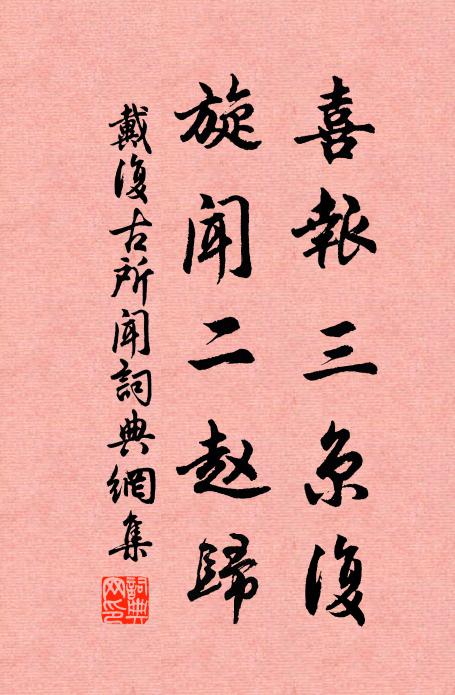 喜報三京復
旋聞二赵歸
戴復古所聞詞典網集
詞典网印